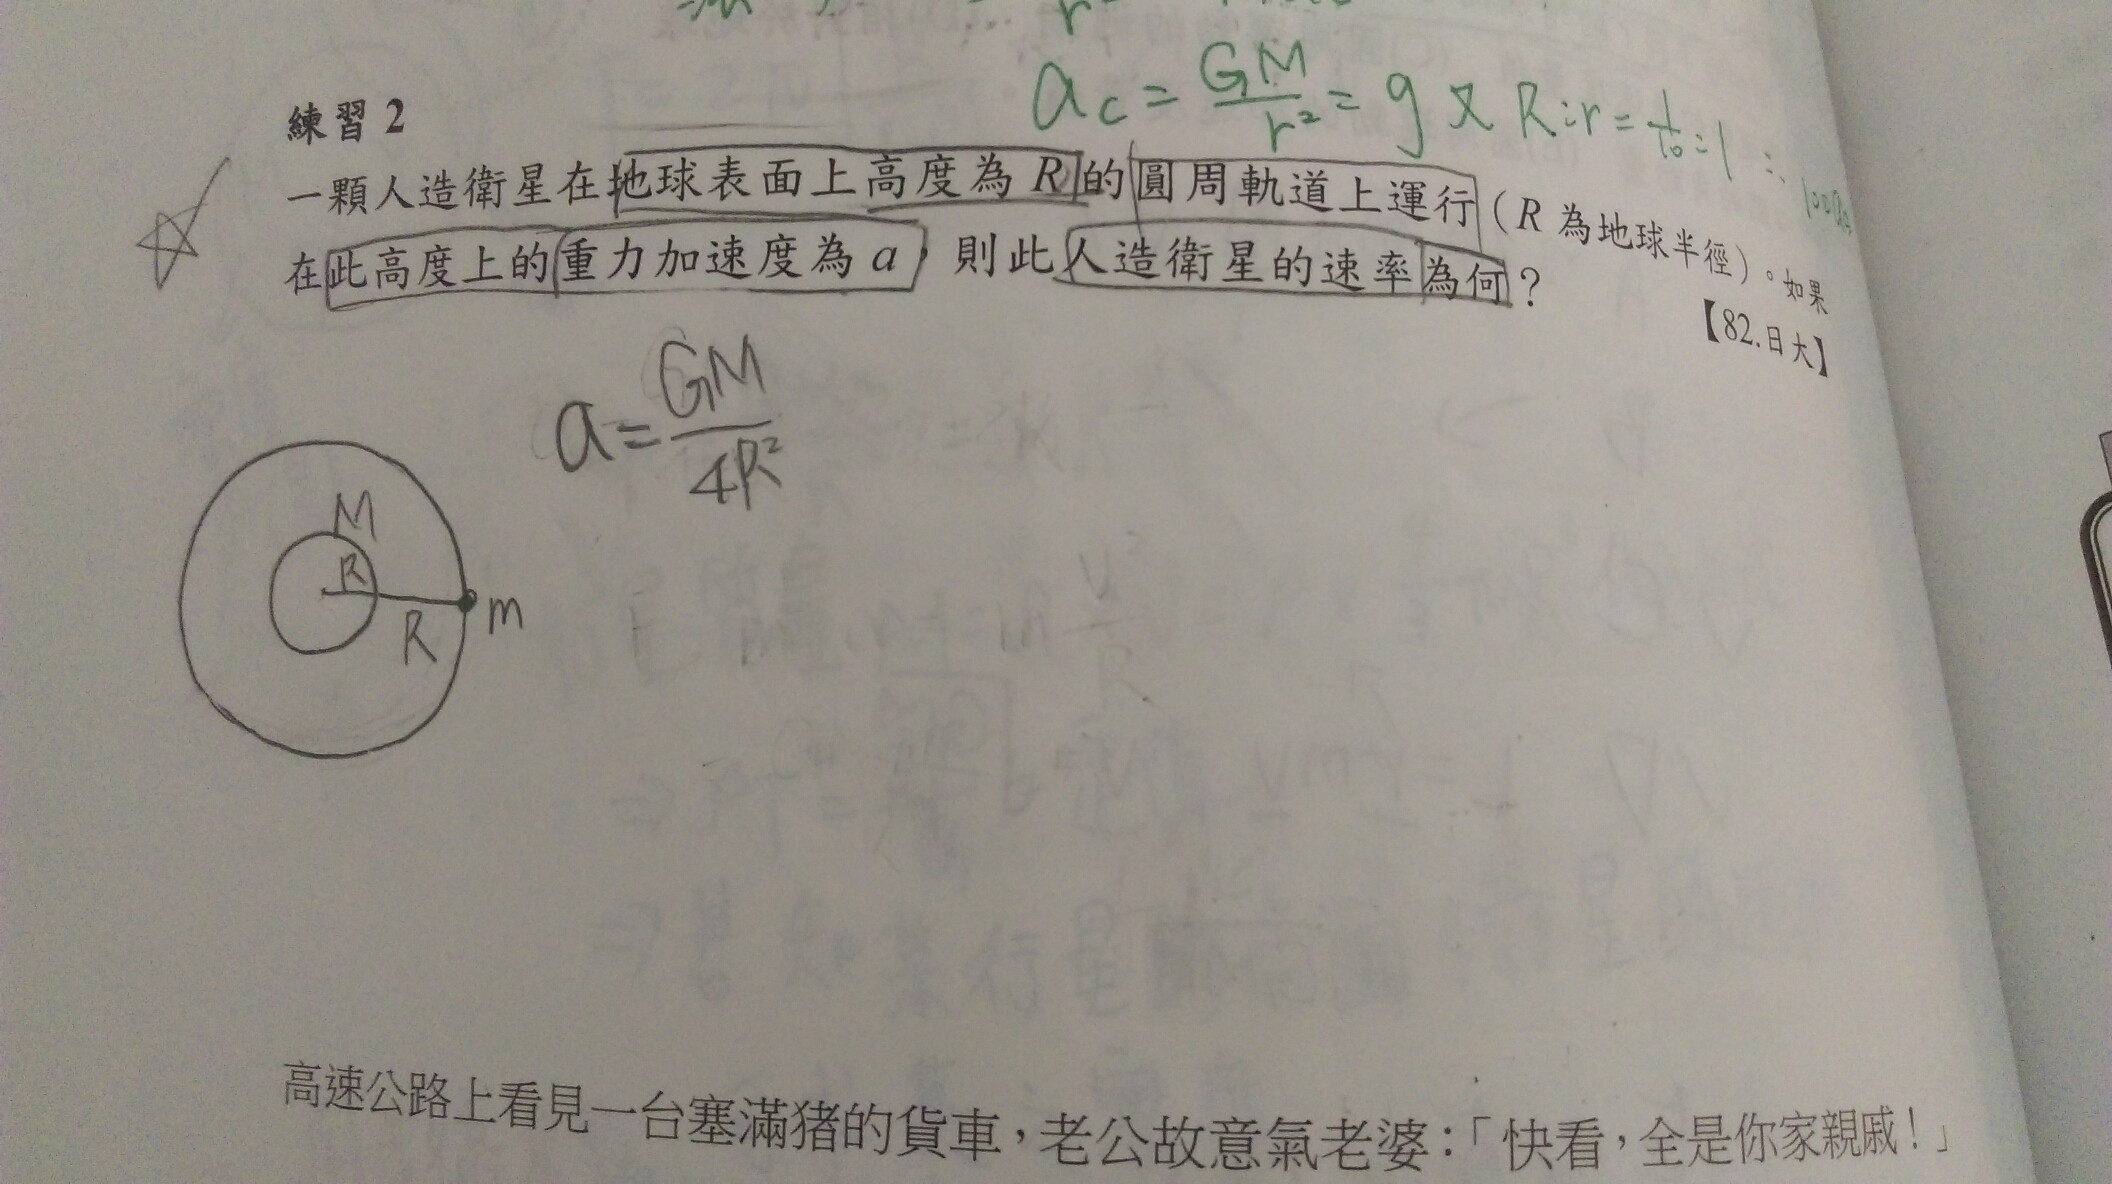 a_c = GM/r² = g 又 R:r = 1/10:1 ∴
練習 2
一顆人造衛星在地球表面上高度為 R 的圓周軌道上運行(R 為地球半徑)。如果
在此高度上的重力加速度為 a,則此人造衛星的速率為何?
【82.日大】
a = GM/4R²
M
R
R
m
高速公路上看見一台塞滿猪的貨車,老公故意氣老婆:「快看,全是你家親戚!」